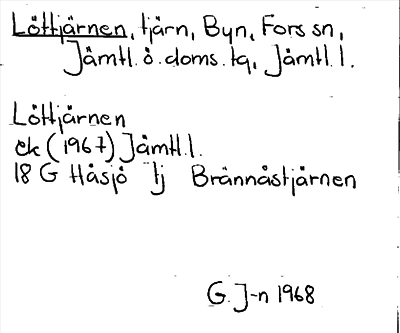 Löttjärnen, tjärn, Byn, Fors sn,
Jämtl. ö. doms. tg, Jämtl. l.
Löttjärnen
ek (1967) Jämtl. l.
18 G Håsjö 1j Brännåstjärnen
G. J-n 1968